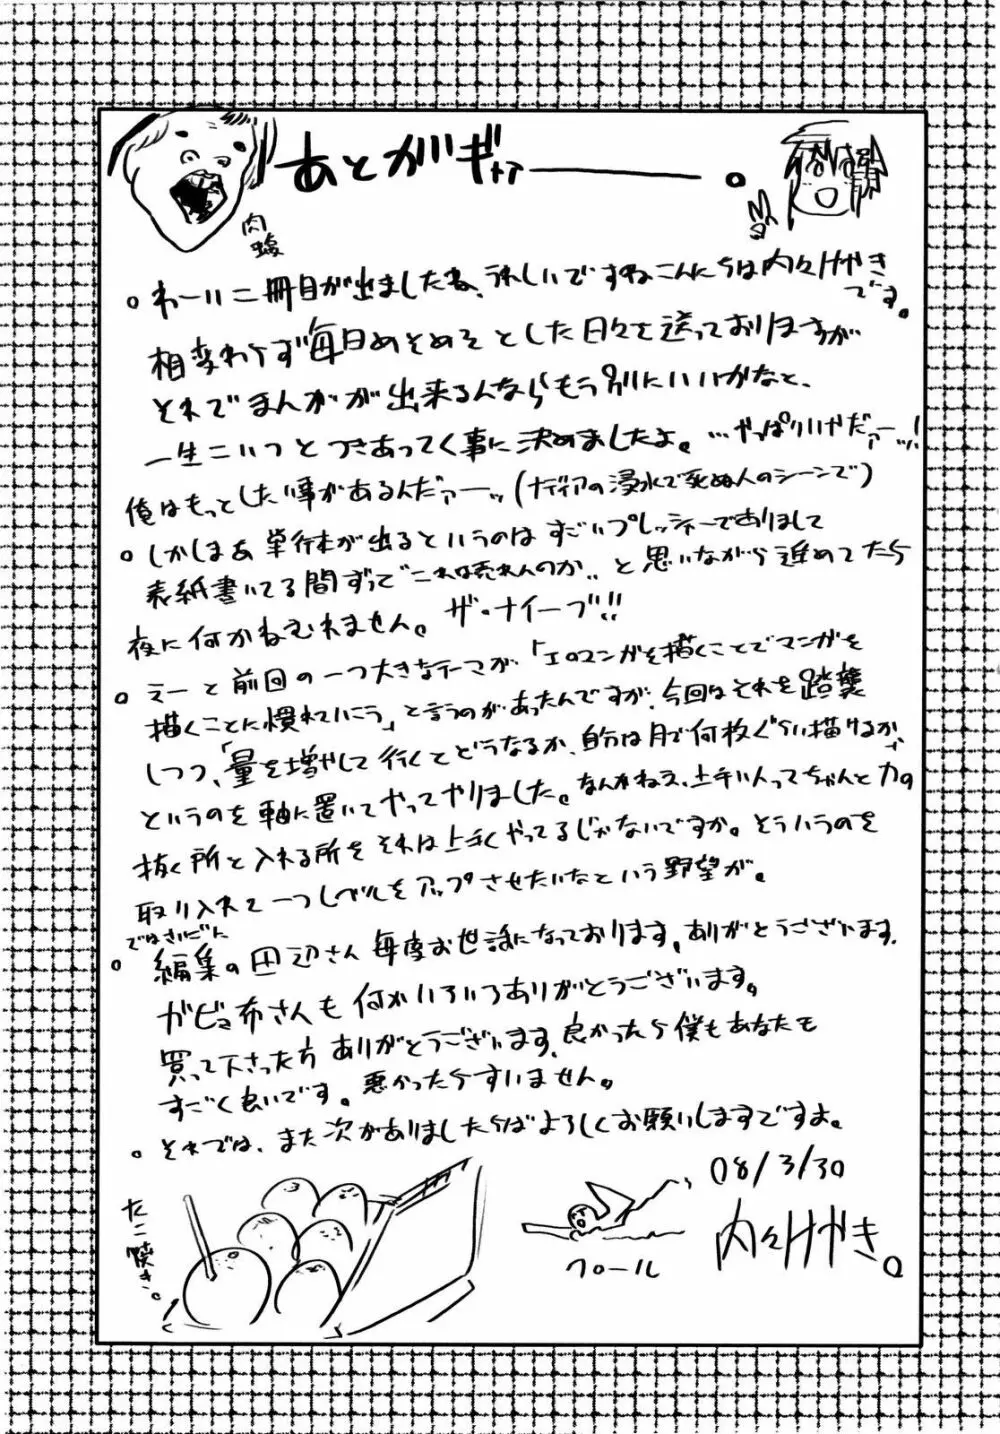 あとがギャァ――――。
肉
。わーい二冊目が出ましたね、うれしいですねこんにちは内々けやき
です。
相変わらず毎日めそめそとした日々を送っておりますが
それでまんがが出来るんならもう別にいいかなと、
一生こいつとつきあってく事に決めましたよ。…やっぱりいやだァーッ!!
俺はもっとしたい事があるんだァーッ(ナディアの浸水で死ぬ人のシーンで)
。しかしまあ単行本が出るというのはすごいプレッシャーでありまして
表紙書いてる間ずっと"これは売れんのか‥と思いながら進めてたら
夜に何かねむれません。 ザ・ナイーブ!!
。えーと前回の一つ大きなテーマが「エロマンガを描くことでマンガを
描くことに慣れていこう」と言うのがあったんですが、今回はそれを踏襲
しつつ、「量を増やして行くとどうなるか、自分は月で何枚ぐらい描けるか」
というのを軸に置いてやってやりました。なんかねえ、上手い人ってちゃんと力の
抜く所と入れる所をそれは上手くやってるじゃないですか。そういうのを
取り入れて一つレベルをアップさせたいなという野望が。
ではさいごに
。編集の田辺さん毎度お世話になっております、ありがとうございます、
ガビョ布さんも何かいろいろありがとうございます。
買って下さった方ありがとうございます、良かったら僕もあなたも
すごく良いです。悪かったらすいません。
。それでは、また次がありましたらばよろしくお願いしますですよ。
たこ焼き。
クロール
08/3/30
内々けやき。